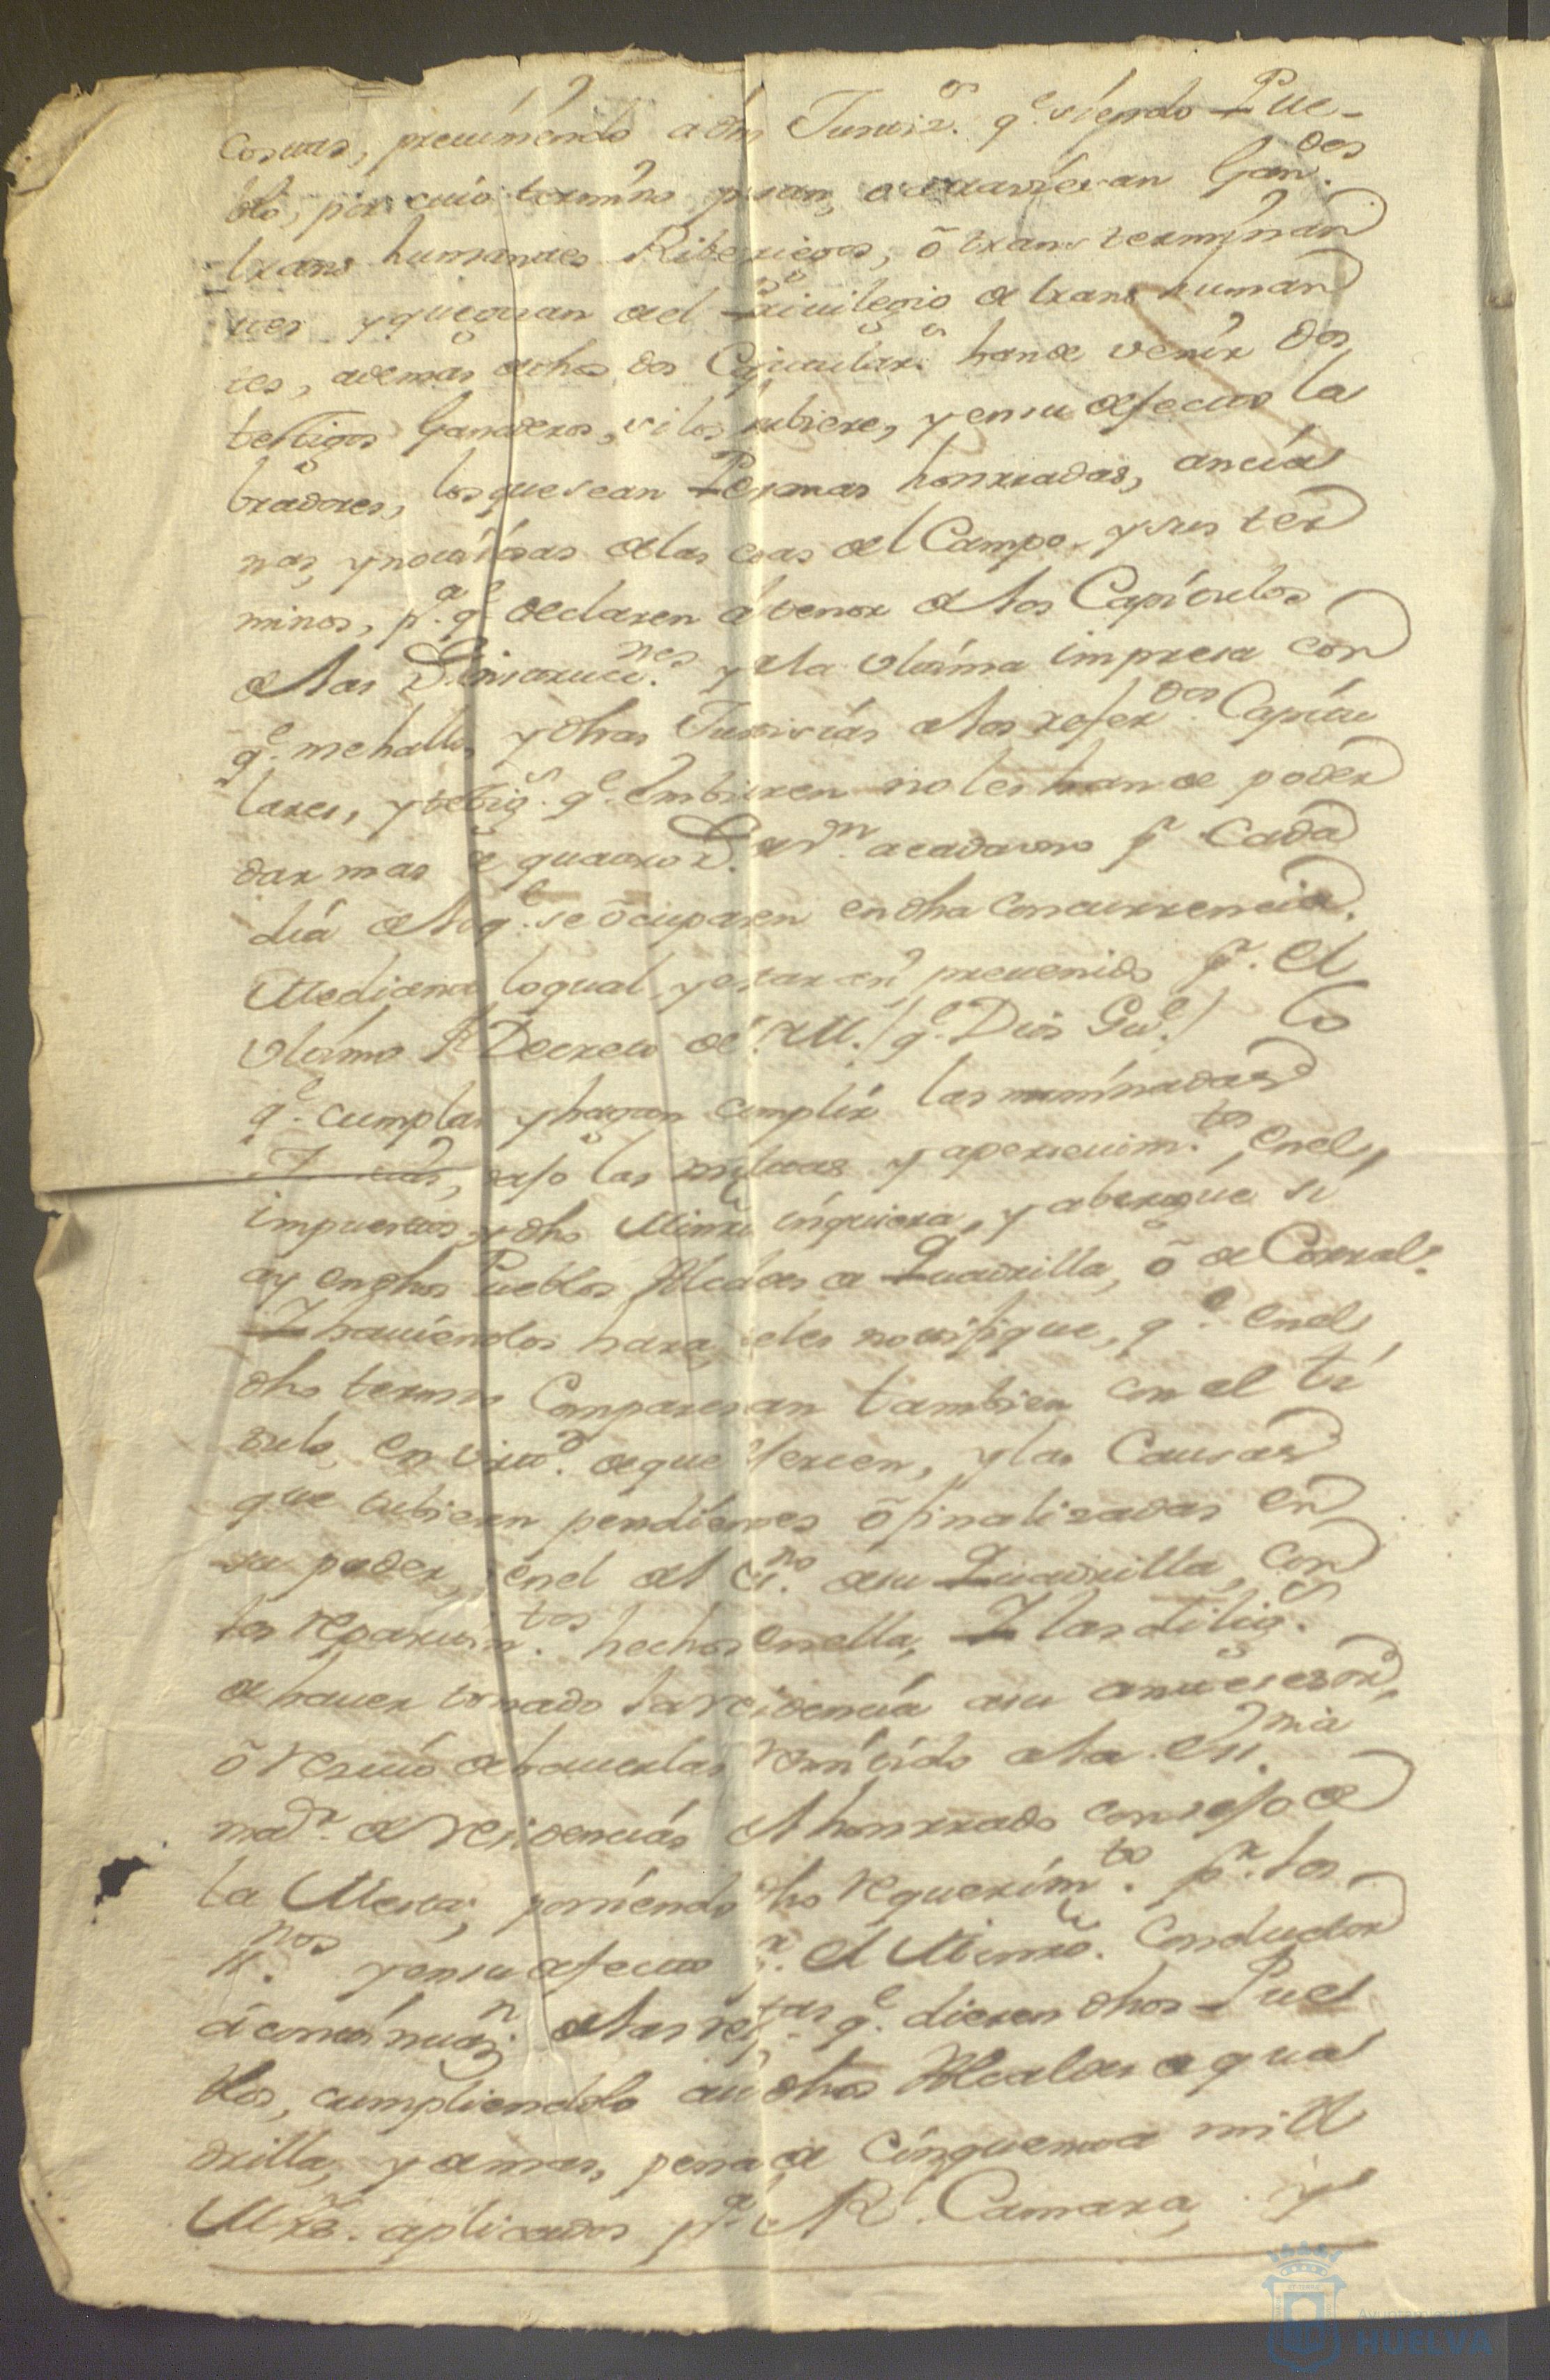 costas, previniendo a dhas Justiz.as q.e siendo Pue-
blo, por cuio termino pasan, o atraviesan Gan.dos
trans humantes Riberiegos, ô trans terminan
tes y que gozan del Privilegio de trans human
tes, ademas de dhos dos Capitular.s han de venir dos
testigos Ganaderos, si los hubiere, y en su defecto la
bradores, los que sean Personas honrradas, ancia
nas, y noticiosas de las cosas del Campo y sus ter
minos, p.a q.e declaren á tenor de los Capitulos
de las Ynstruci.nes y de la ultima impresa con
q.e me hallo, y dhas Justicias a los refer.dos Capitu
lares, y testig.s q.e embiaren no les han de poder
dar mas de quatro R.s de v.n a cada uno p.r cada
dia de los q.e se ôcuparen en dha concurrencia.
Mediante lo qual, y estar asi prevenido p.r el
ultimo R.l Decreto de S.M. (q.e Dios Gu.e) lo
q.e cumplan y hagan cumplir las nominadas
Justicias, bajo las multas y apercevim.tos en el
impuestos, y dho Ministro inquiera, y aberigue si
ay en dhos Pueblos Alcaldes de Quadrilla, ô de Corral.
Y haviendolos hará se les notifique, q.e en el
dho termino Comparescan tambien con el ti
tulo en virtd. de que ejercen, y las Causas
que tubieren pendientes ô finalizadas en
su poder, ô en el del Es.no de su Quadrilla, con
los repartim.tos hechos en ella, Y las dilig.s
de haver tomado la residencia a su antecesor,
ô reciuo de haverlas remitido a la Es.nia
mar. de residencias del honrrado consejo de
la Mesta, poniendo dho requerim.to p.r los
Es.nos y en su defecto p.r el Ministro Conductor
á continuaz.n de las resp.tas q.e dieren dhos Pue
blos, cumpliendolo asi dhos Alcaldes de qua
drilla, y demas, pena de cinquenta mill
Mrs. aplicados p.a la R.l Camara, y
HUELVA